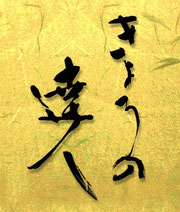 きょうの
達人